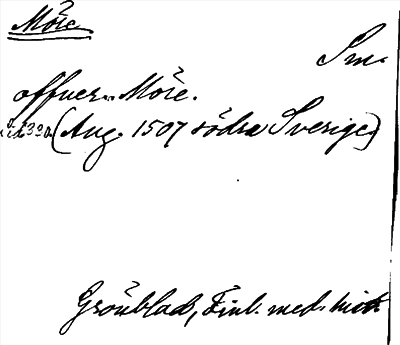 Möre
Sm.
offuer Möre.
(Aug. 1507 södra Sverige)
Grönblad, Finl. med. hist.